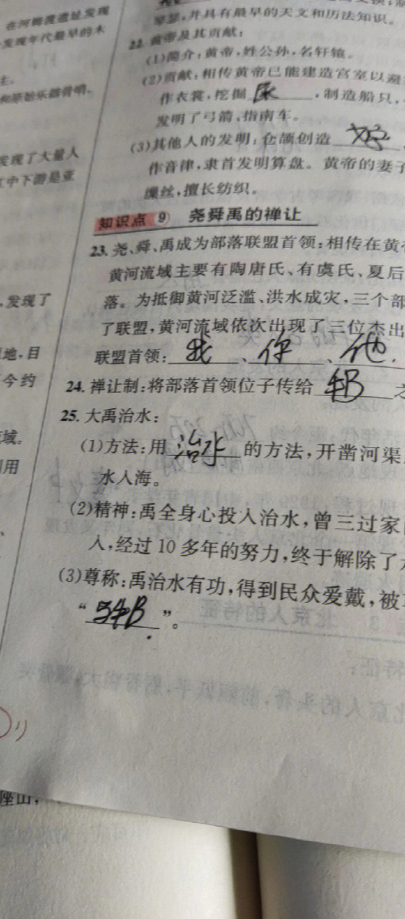 在河姆渡遗址发现
发现年代最早的木
和原始乐器骨哨。
发现了大量人
江中下游是亚
,发现了
今约
用
琴瑟,并具有最早的天文和历法知识。
22. 黄帝及其贡献:
(1)简介:黄帝,姓公孙,名轩辕。
(2)贡献:相传黄帝已能建造宫室以避
作衣裳,挖掘 尿 ,制造船只,
发明了弓箭、指南车。
(3)其他人的发明:仓颉创造
作音律,隶首发明算盘。黄帝的妻子
缫丝,擅长纺织。
知识点 9 尧舜禹的禅让
23. 尧、舜、禹成为部落联盟首领:相传在黄
黄河流域主要有陶唐氏、有虞氏、夏后
落。为抵御黄河泛滥、洪水成灾,三个部
了联盟,黄河流域依次出现了三位杰出
联盟首领: 我 、 你 、 他 .
24. 禅让制:将部落首领位子传给 牛B 之
25. 大禹治水:
(1)方法:用 治水 的方法,开凿河渠
水入海。
(2)精神:禹全身心投入治水,曾三过家
人,经过 10 多年的努力,终于解除了
(3)尊称:禹治水有功,得到民众爱戴,被
“ 牛B ”。